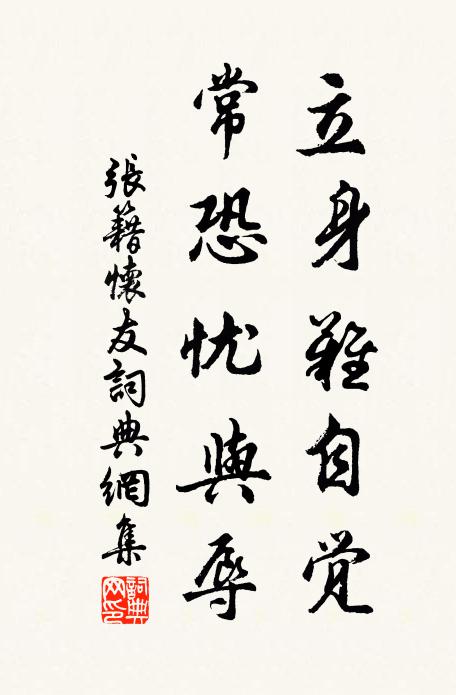 立身難自觉
常恐忧與辱
張籍懷友詞典網集
詞典网印